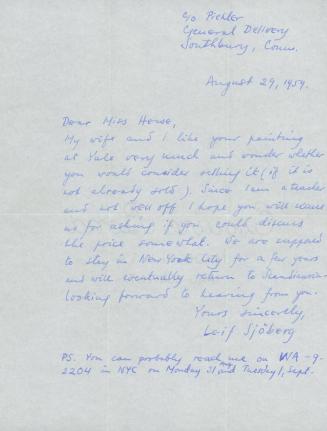 c/o Pickler
General Delivery
Southbury, Conn.
August 29, 1959.
Dear Miss Howe,
My wife and I like your painting
at Yale very much and wonder whether
you would consider selling it (if it is
not already sold). Since I am a teacher
and not well off I hope you will excuse
us for asking if you could discuss
the price somewhat. We are supposed
to stay in New York City for a few years
and will eventually return to Skandinavia.
Looking forward to hearing from you.
Yours sincerely,
Leif Sjöberg
PS. You can probably reach me on WA-9-
2204 in NYC on Monday 31 and Tuesday 1, Sept.